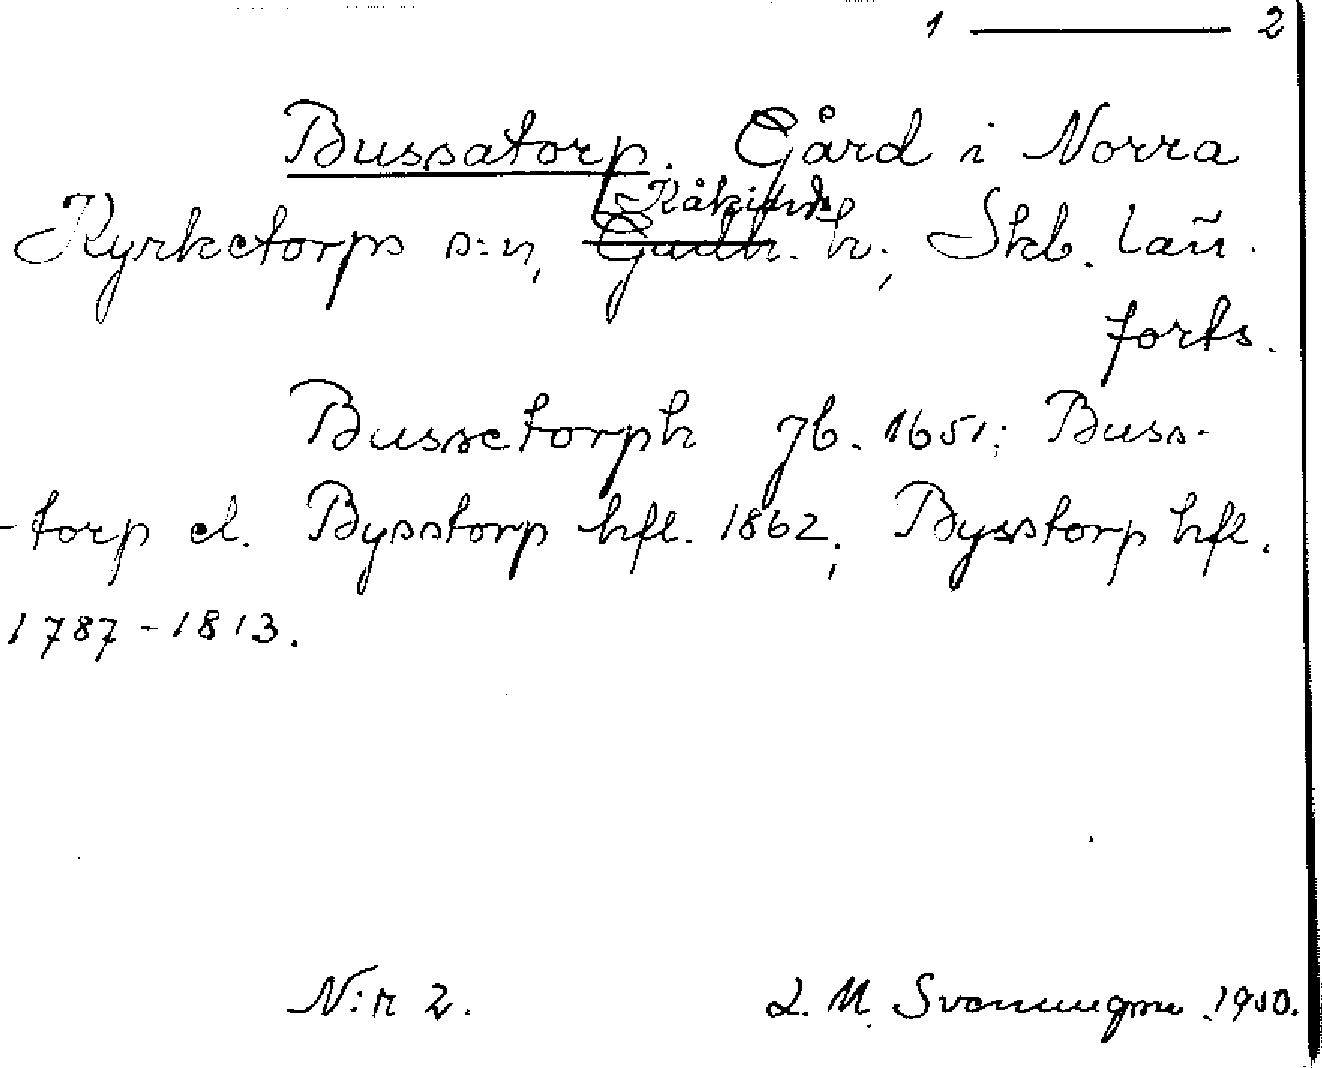 1 — 2
Bussatorp. Gård i Norra
Kåkinds
Kyrketorps s:n, Gudh. h., Skb. län.
forts.
Bussetorph jb. 1651; Buss-
-torp el. Bysstorp hfl. 1862; Bysstorp hfl.
1787-1813.
N:r 2. L. M. Svenungsson 1950.